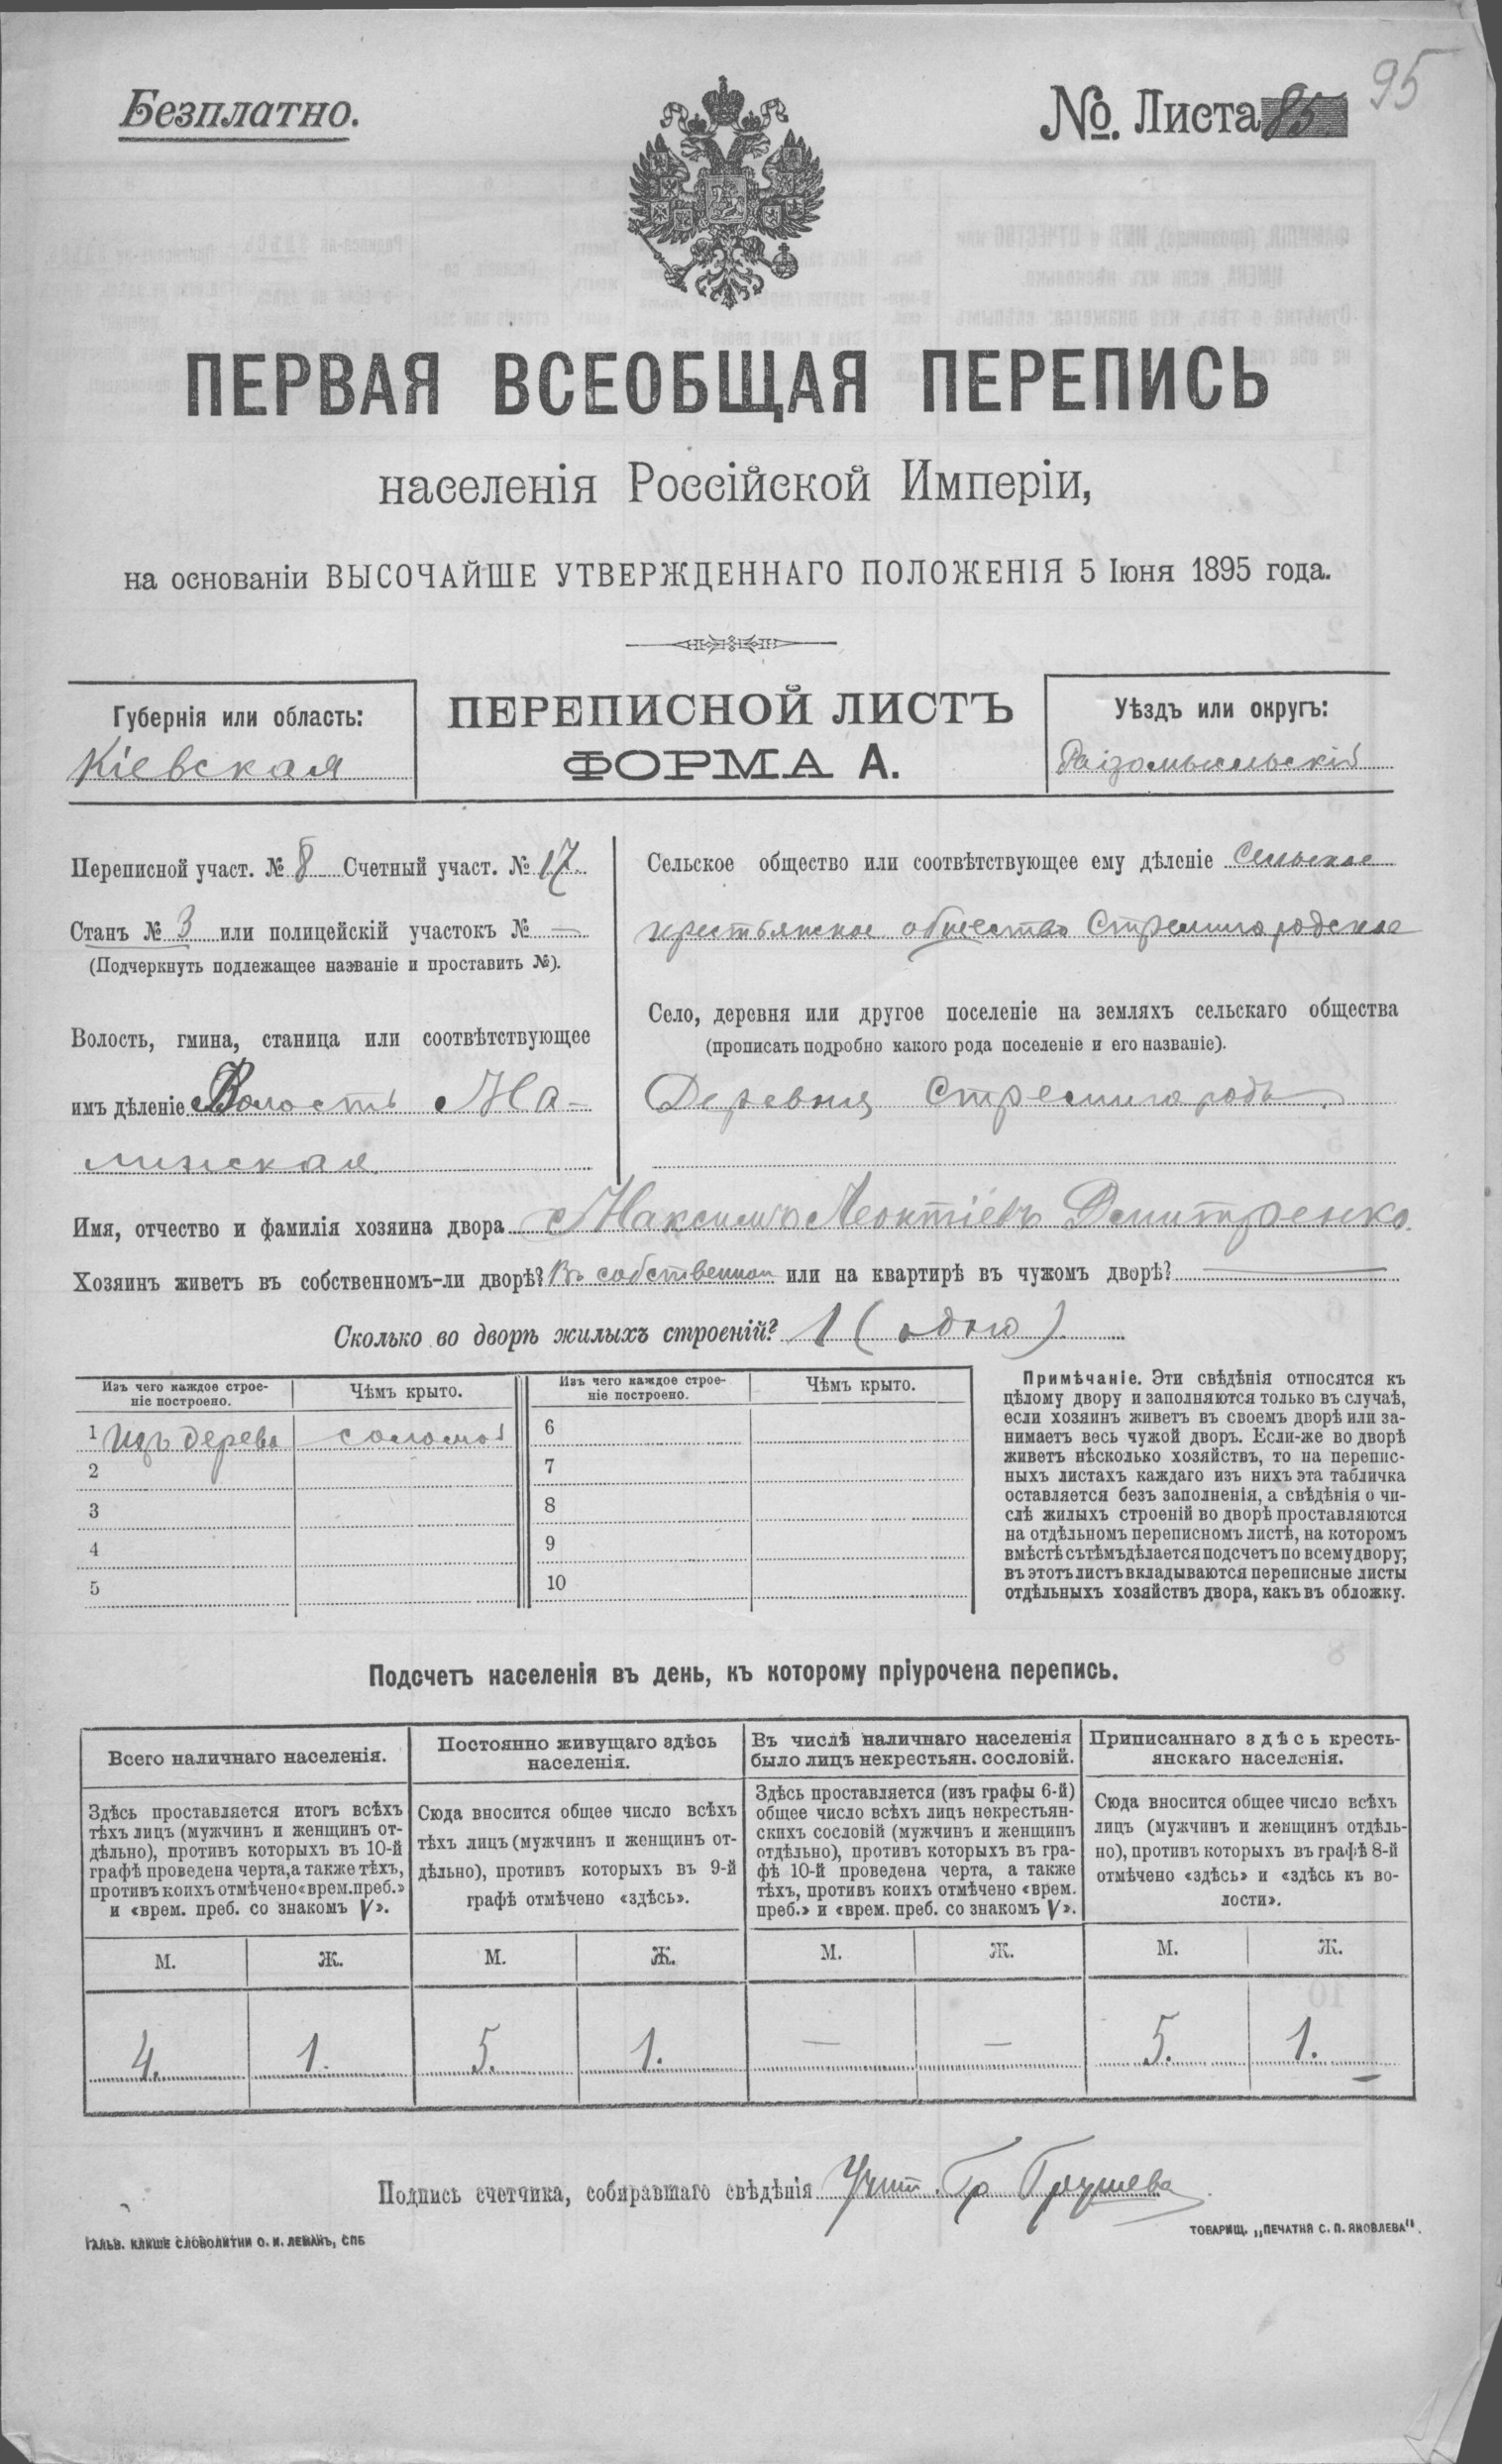 95
Безплатно.
№. Листа 85
ПЕРВАЯ ВСЕОБЩАЯ ПЕРЕПИСЬ
населенія Россійской Имперіи,
на основаніи ВЫСОЧАЙШЕ УТВЕРЖДЕННАГО ПОЛОЖЕНІЯ 5 Іюня 1895 года.
Губернія или область:
Кіевская
ПЕРЕПИСНОЙ ЛИСТЪ
ФОРМА А.
Уѣздъ или округъ:
Переписной участ. № 8 Счетный участ. № 17.
Станъ № 3 или полицейскій участокъ № —
(Подчеркнуть подлежащее названіе и проставить №).
Волость, гмина, станица или соотвѣтствующее
имъ дѣленіе Волость Ма-
линская
Сельское общество или соотвѣтствующее ему дѣленіе Сельское
крестьянское общество Стремигородское
Село, деревня или другое поселеніе на земляхъ сельскаго общества
(прописать подробно какого рода поселеніе и его названіе).
Деревня Стремигородъ.
Имя, отчество и фамилія хозяина двора Максимъ Леонтіевъ Дмитренко.
Хозяинъ живетъ въ собственномъ-ли дворѣ? Въ собственном или на квартирѣ въ чужомъ дворѣ? —
Сколько во дворѣ жилыхъ строеній? 1 (одно)
Изъ чего каждое строе-
ніе построено.
Чѣмъ крыто.
Изъ чего каждое строе-
ніе построено.
Чѣмъ крыто.
1 Изъ дерева соломой
2
3
4
5
6
7
8
9
10
Примѣчаніе. Эти свѣдѣнія относятся къ
цѣлому двору и заполняются только въ случаѣ,
если хозяинъ живетъ въ своемъ дворѣ или за-
нимаетъ весь чужой дворъ. Если-же во дворѣ
живетъ нѣсколько хозяйствъ, то на перепис-
ныхъ листахъ каждаго изъ нихъ эта табличка
оставляется безъ заполненія, а свѣдѣнія о чи-
слѣ жилыхъ строеній во дворѣ проставляются
на отдѣльномъ переписномъ листѣ, на которомъ
вмѣстѣ съ тѣмъ дѣлается подсчетъ по всему двору;
въ этотъ листъ вкладываются переписные листы
отдѣльныхъ хозяйствъ двора, какъ въ обложку.
Подсчетъ населенія въ день, къ которому пріурочена перепись.
Всего наличнаго населенія.
Здѣсь проставляется итогъ всѣхъ
тѣхъ лицъ (мужчинъ и женщинъ от-
дѣльно), противъ которыхъ въ 10-й
графѣ проведена черта, а также тѣхъ,
противъ коихъ отмѣчено «врем. преб.»
и «врем. преб. со знакомъ V».
Постоянно живущаго здѣсь
населенія.
Сюда вносится общее число всѣхъ
тѣхъ лицъ (мужчинъ и женщинъ от-
дѣльно), противъ которыхъ въ 9-й
графѣ отмѣчено «здѣсь».
Въ числѣ наличнаго населенія
было лицъ некрестьян. сословій.
Здѣсь проставляется (изъ графы 6-й)
общее число всѣхъ лицъ некрестьян-
скихъ сословій (мужчинъ и женщинъ
отдѣльно), противъ которыхъ въ гра-
фѣ 10-й проведена черта, а также
тѣхъ, противъ коихъ отмѣчено «врем.
преб.» и «врем. преб. со знакомъ V».
Приписаннаго здѣсь кресть-
янскаго населенія.
Сюда вносится общее число всѣхъ
лицъ (мужчинъ и женщинъ отдѣль-
но), противъ которыхъ въ графѣ 8-й
отмѣчено «здѣсь» и «здѣсь къ во-
лости».
М. Ж. М. Ж. М. Ж. М. Ж.
4. 1. 5. 1. — — 5. 1.
Подпись счетчика, собиравшаго свѣдѣнія
ГАЛЬВ. КЛИШЕ СЛОВОЛИТНИ О. И. ЛЕМАНЪ, СПБ
ТОВАРИЩ. „ПЕЧАТНЯ С. П. ЯКОВЛЕВА".